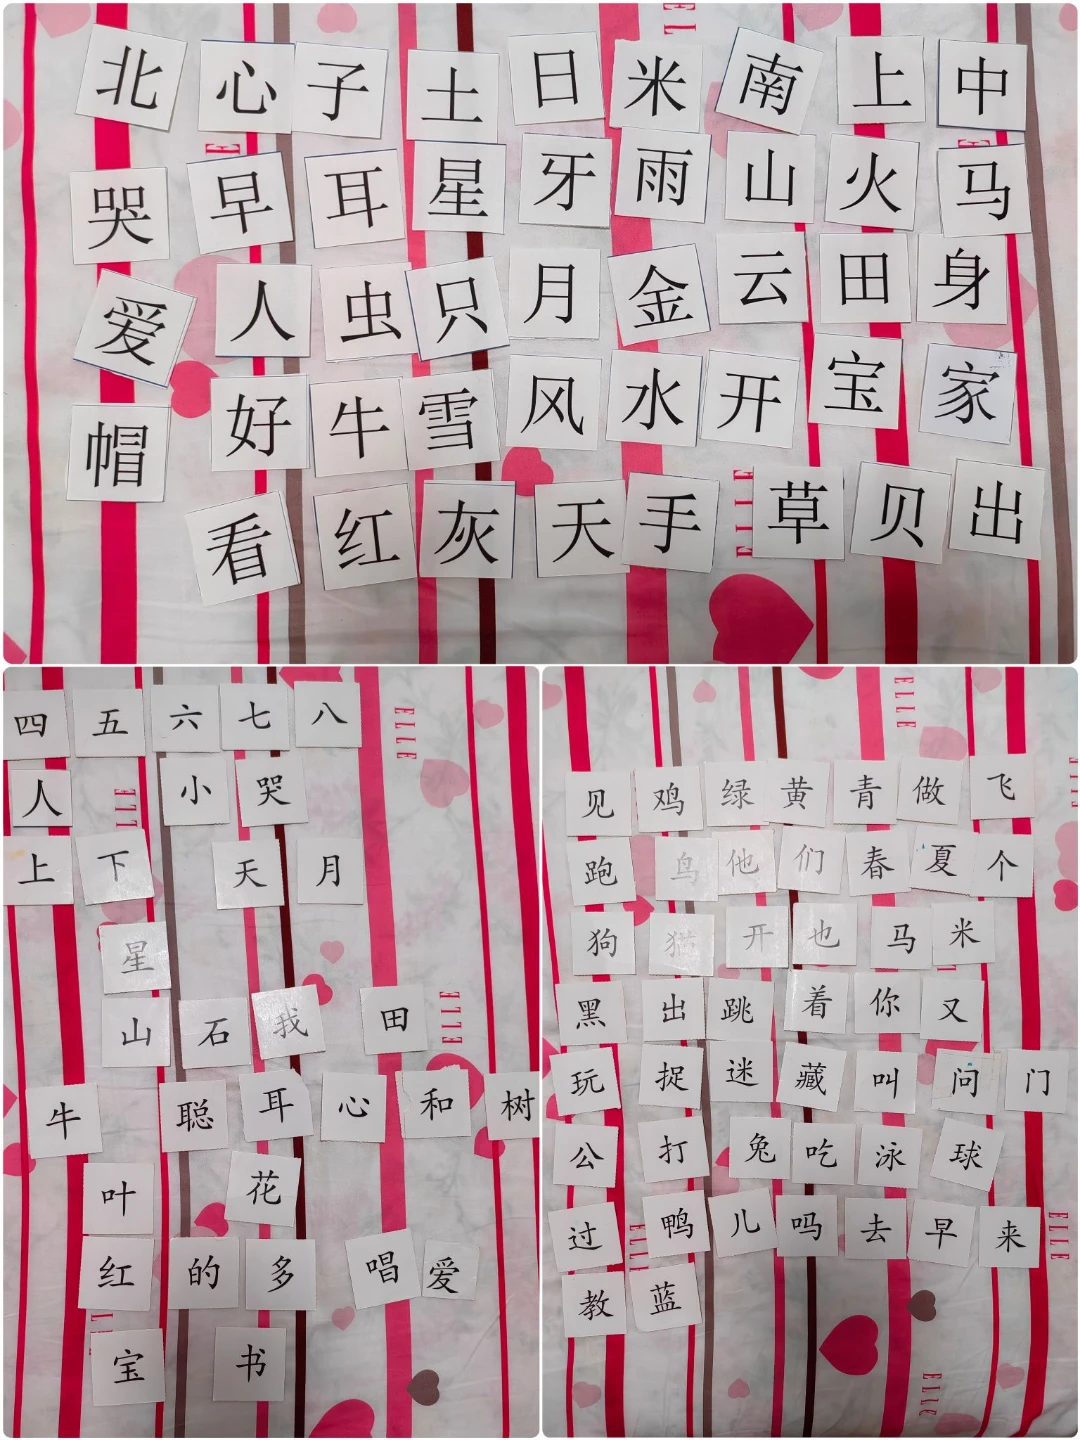 ELLE
北 心 子 土 日 米 南 上 中
哭 早 耳 星 牙 雨 山 火 马
爱 人 虫 只 月 金 云 田 身
帽 好 牛 雪 风 水 开 宝 家
看 红 灰 天 手 草 贝 出
ELLE
四 五 六 七 八
ELLE
人 小 哭
上 下 天 月
星
山 石 我 田
ELLE
牛 聪 耳 心 和 树
叶 花
红 的 多 唱 爱
宝 书
ELLE
见 鸡 绿 黄 青 做 飞
跑 鸟 他 们 春 夏 个
狗 猫 开 也 马 米
黑 出 跳 着 你 又
玩 捉 迷 藏 叫 问 门
公 打 兔 吃 泳 球
过 鸭 儿 吗 去 早 来
ELLE
教 蓝
ELLE